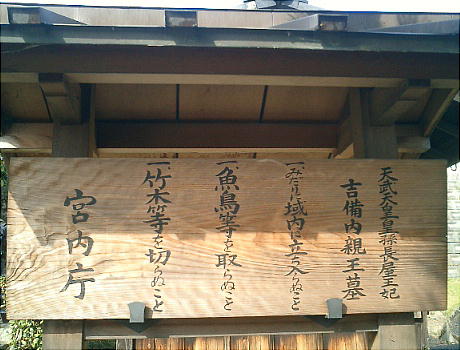 天武天皇皇孫長屋王妃
吉備内親王墓
一、みだりに域内に立ち入らぬこと
一、魚鳥等を取らぬこと
一、竹木等を切らぬこと
宮内庁